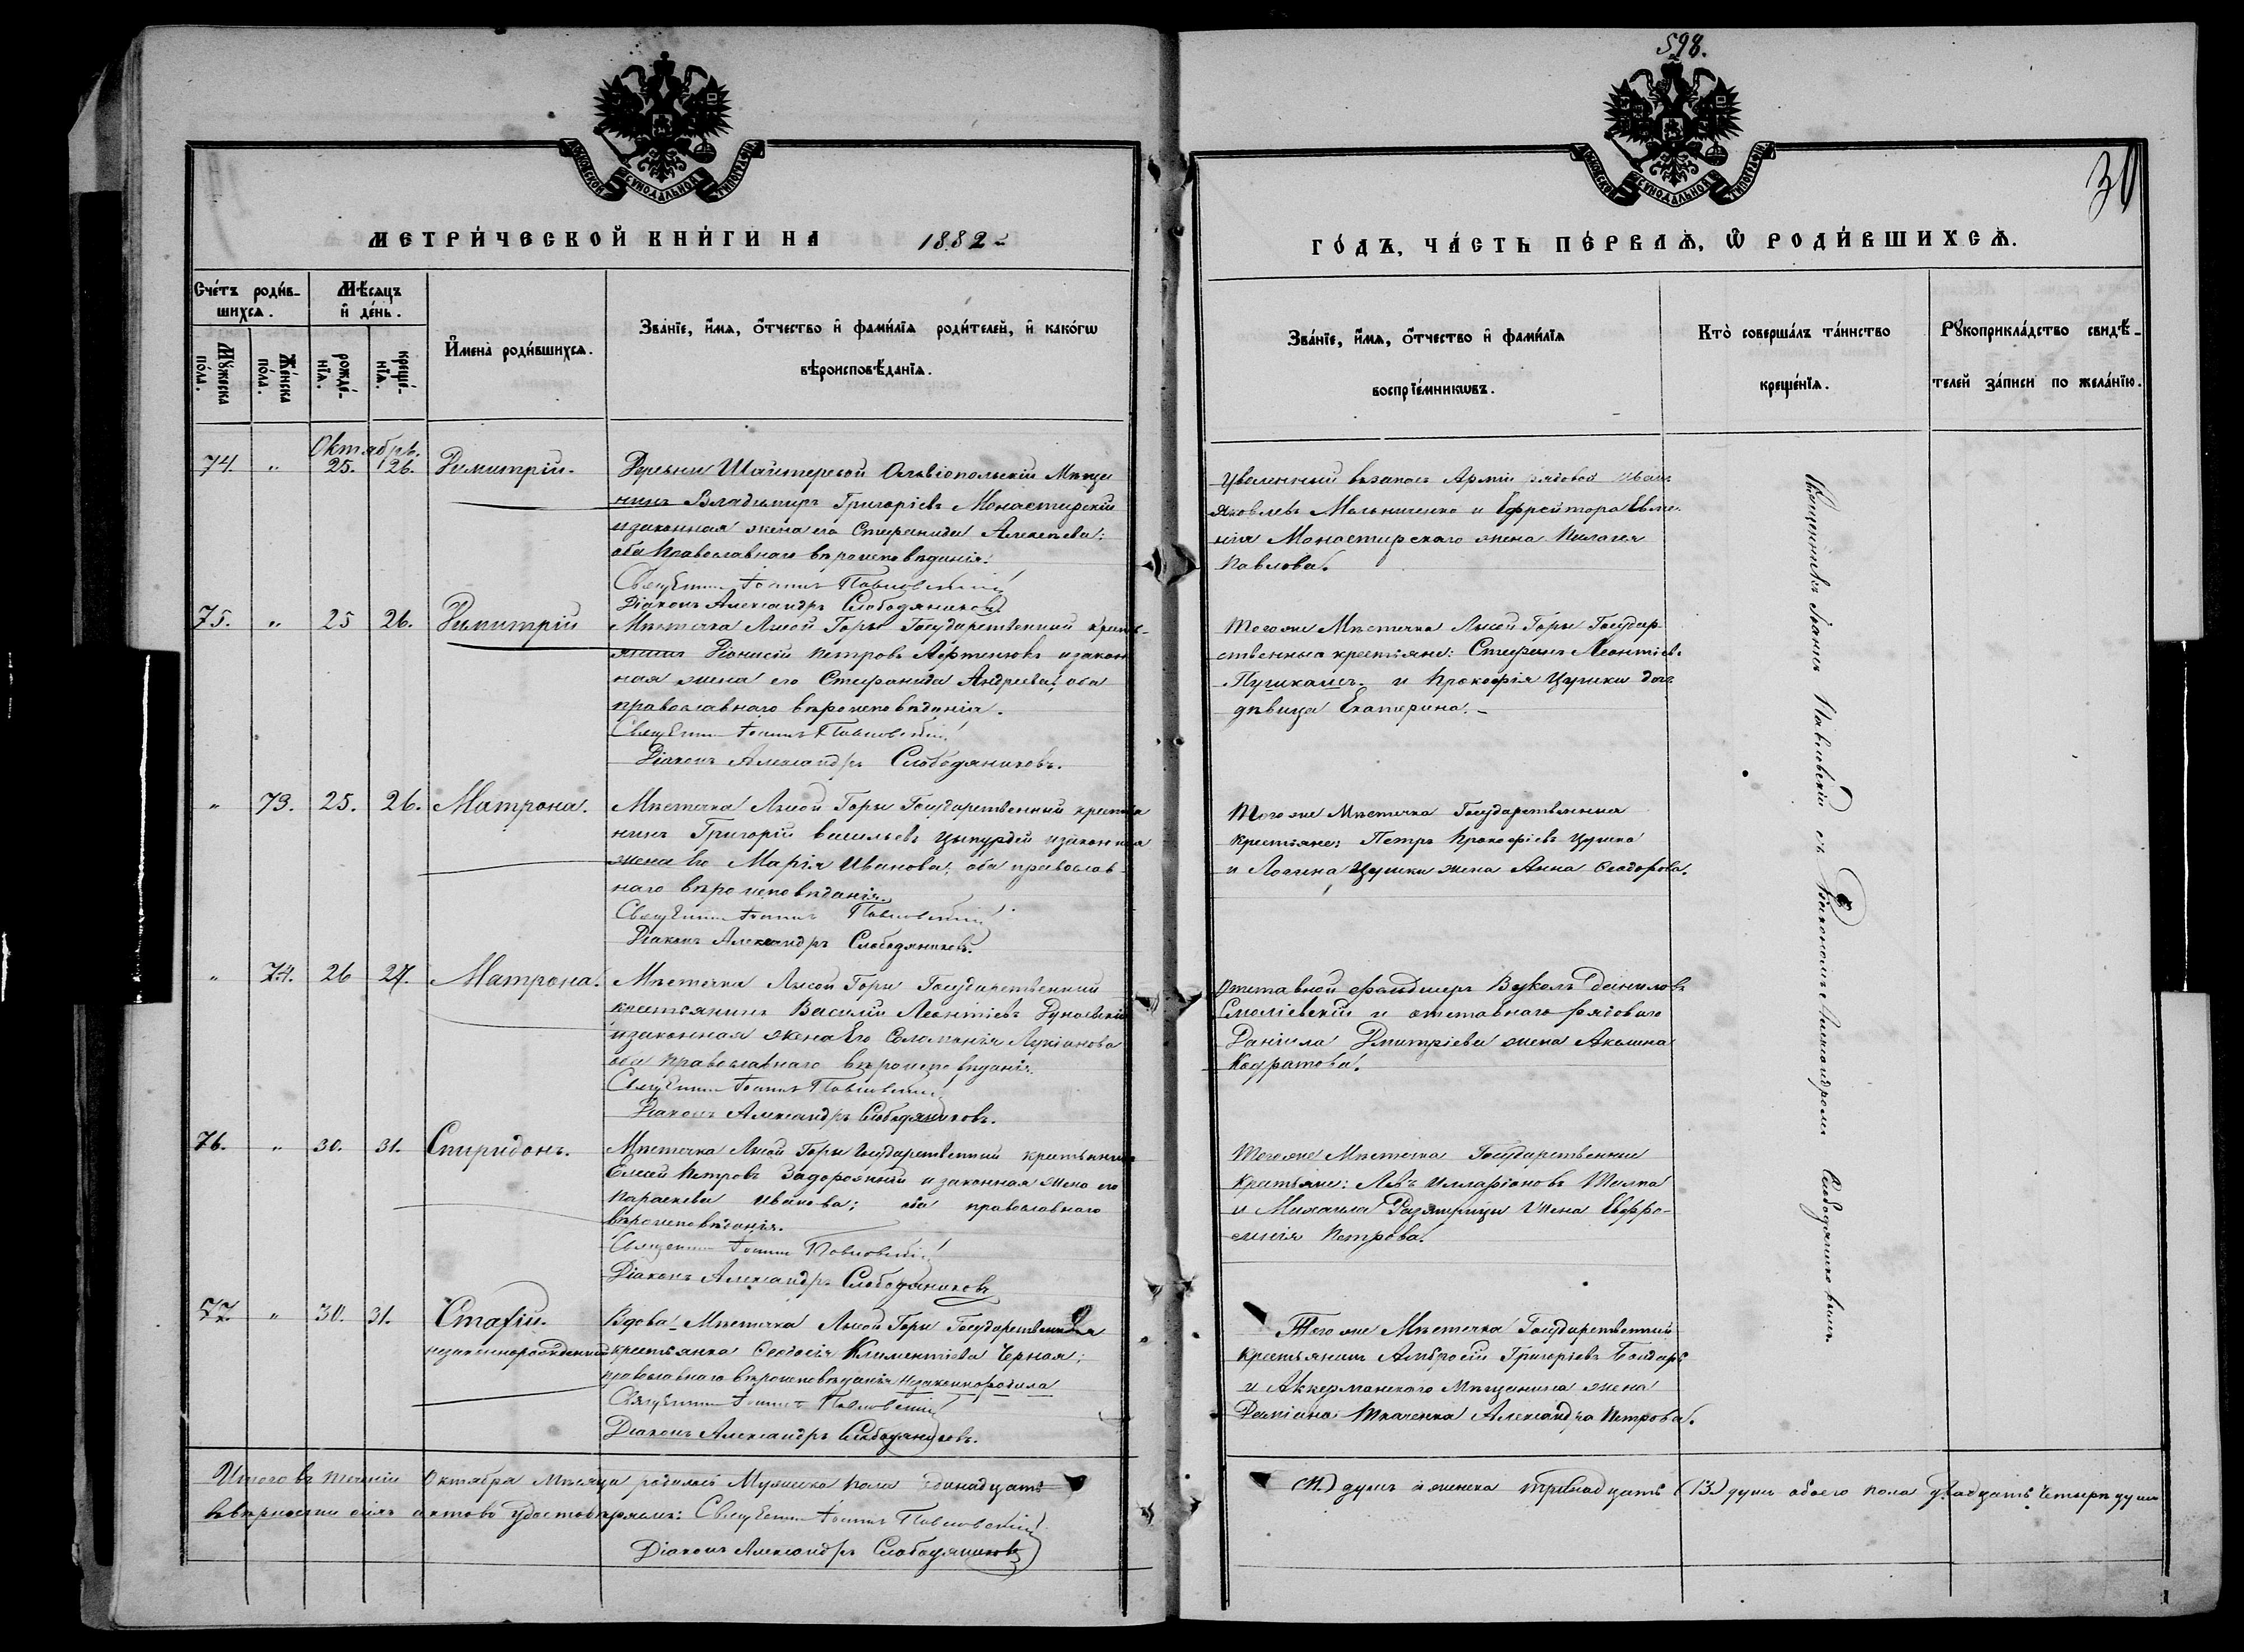 598.
30
МОСКОВСКОЙ СѴНОДАЛЬНОЙ ТИПОГРАФІИ
МОСКОВСКОЙ СѴНОДАЛЬНОЙ ТИПОГРАФІИ
МЕТРИ́ЧЕСКОЙ КНИ́ГИ НА 1882
ГО́ДЪ, ЧА́СТЬ ПЕ́РВАѦ, Ѡ҆ РОДИ́ВШИХСѦ.
Сче́тъ роди́в-
шихсѧ.
Мѣ́сѧцъ
и҆ де́нь.
Мꙋ́жеска
по́ла.
Же́нска
по́ла.
рожде́-
нїѧ.
креще́-
нїѧ.
И҆мена̀ роди́вшихсѧ.
Зва́нїе, и҆́мѧ, ѻ҆́тчество и҆ фами́лїѧ роди́телей, и҆ како́гѡ
вѣроисповѣ́данїѧ.
Зва́нїе, и҆́мѧ, ѻ҆́тчество и҆ фами́лїѧ
воспрїе́мникѡвъ.
Кто̀ соверша́лъ та́инство
креще́нїѧ.
Рꙋкоприкла́дство свидѣ́-
телей за́писи по жела́нїю.
Октябрь.
74. " 25. 26. Димитрій.
Деревни Шайтеревой Ольвіопольскій Мѣща
нинъ Владимиръ Григоріевъ Монастирскій
и законная жена его Стефанида Алексѣева:
оба Православнаго вѣроисповѣданія.
Священникъ Іоаннъ Павловскій
Діаконъ Александръ Слободяниковъ.
Уволенный въ запасъ Арміи рядовой Иванъ
Яковлевъ Мельниченко и Ефрейтора Евме-
нія Монастирскаго жена Пелагія
Павлова.
75. " 25 26. Димитрій
Мѣстечка Лысой Горы Государственный кресть-
янинъ Діонисій Петровъ Афтенюкъ и закон
ная жена его Стефанида Андреева; оба
православнаго вѣроисповѣданія.
Священникъ Іоаннъ Павловскій
Діаконъ Александръ Слободяниковъ.
Того же Мѣстечка Лысой Горы Государ-
ственныя крестьяне: Стефанъ Леонтіевъ
и Прокофія Цурики дочь
дѣвица Екатерина.
" 73. 25. 26. Матрона.
Мѣстечка Лысой Горы Государственный крестья
нинъ Григорій Васильевъ и законная
жена его Марія Иванова; оба православ-
наго вѣроисповѣданія.
Священникъ Іоаннъ Павловскій
Діаконъ Александръ Слободяниковъ.
Того же Мѣстечка Государственныя
крестьяне: Петръ Прокофіевъ Цурика
и Логина Цурики жена Анна Ѳеодорова.
" 74. 26 27. Матрона.
Мѣстечка Лысой Горы Государственный
крестьянинъ Василій Леонтіевъ Дунаевскій
и законная жена Его Соломонія Лукіанова
оба православнаго вѣроисповѣданія.
Священникъ Іоаннъ Павловскій
Діаконъ Александръ Слободяниковъ.
Отставной фельдшеръ Вуколъ Даниловъ
Смоліевскій и отставнаго рядоваго
Даніила Дмитріева жена Акилина
Кодратова.
76. " 30. 31. Спиридонъ.
Мѣстечка Лысой Горы Государственный крестьянинъ
Елисей Петровъ Задорожный и законная жена его
Параскева Иванова; оба православнаго
вѣроисповѣданія.
Священникъ Іоаннъ Павловскій
Діаконъ Александръ Слободяниковъ
Того же Мѣстечка Государственные
крестьяне: Левъ Илларіоновъ
и Михаила жена Евфро-
синія Петрова.
77. " 30. 31. Стахій.
незаконнорожденный
Вдова Мѣстечка Лысой Горы Государственная
крестьянка Ѳеодосія Климентіева Черная;
православнаго вѣроисповѣданія незаконнородила
Священникъ Іоаннъ Павловскій
Діаконъ Александръ Слободяниковъ.
Того же Мѣстечка Государственный
крестьянинъ Амбросій Григоріевъ Бондарь
и Аккерманскаго Мѣщанина жена
Даміана Ткаченка Александра Петрова.
Священникъ Іоаннъ Павловскій съ Діакономъ Александромъ Слободяниковымъ.
Итого въ теченіи Октября Мѣсяца родилось Мужеска пола одинадцать
(11.) душъ а женска тринадцать (13.) душъ обоего пола двадцать четыре души
вѣрности сихъ актовъ удостовѣряемъ: Священникъ Іоаннъ Павловскій
Діаконъ Александръ Слободяниковъ